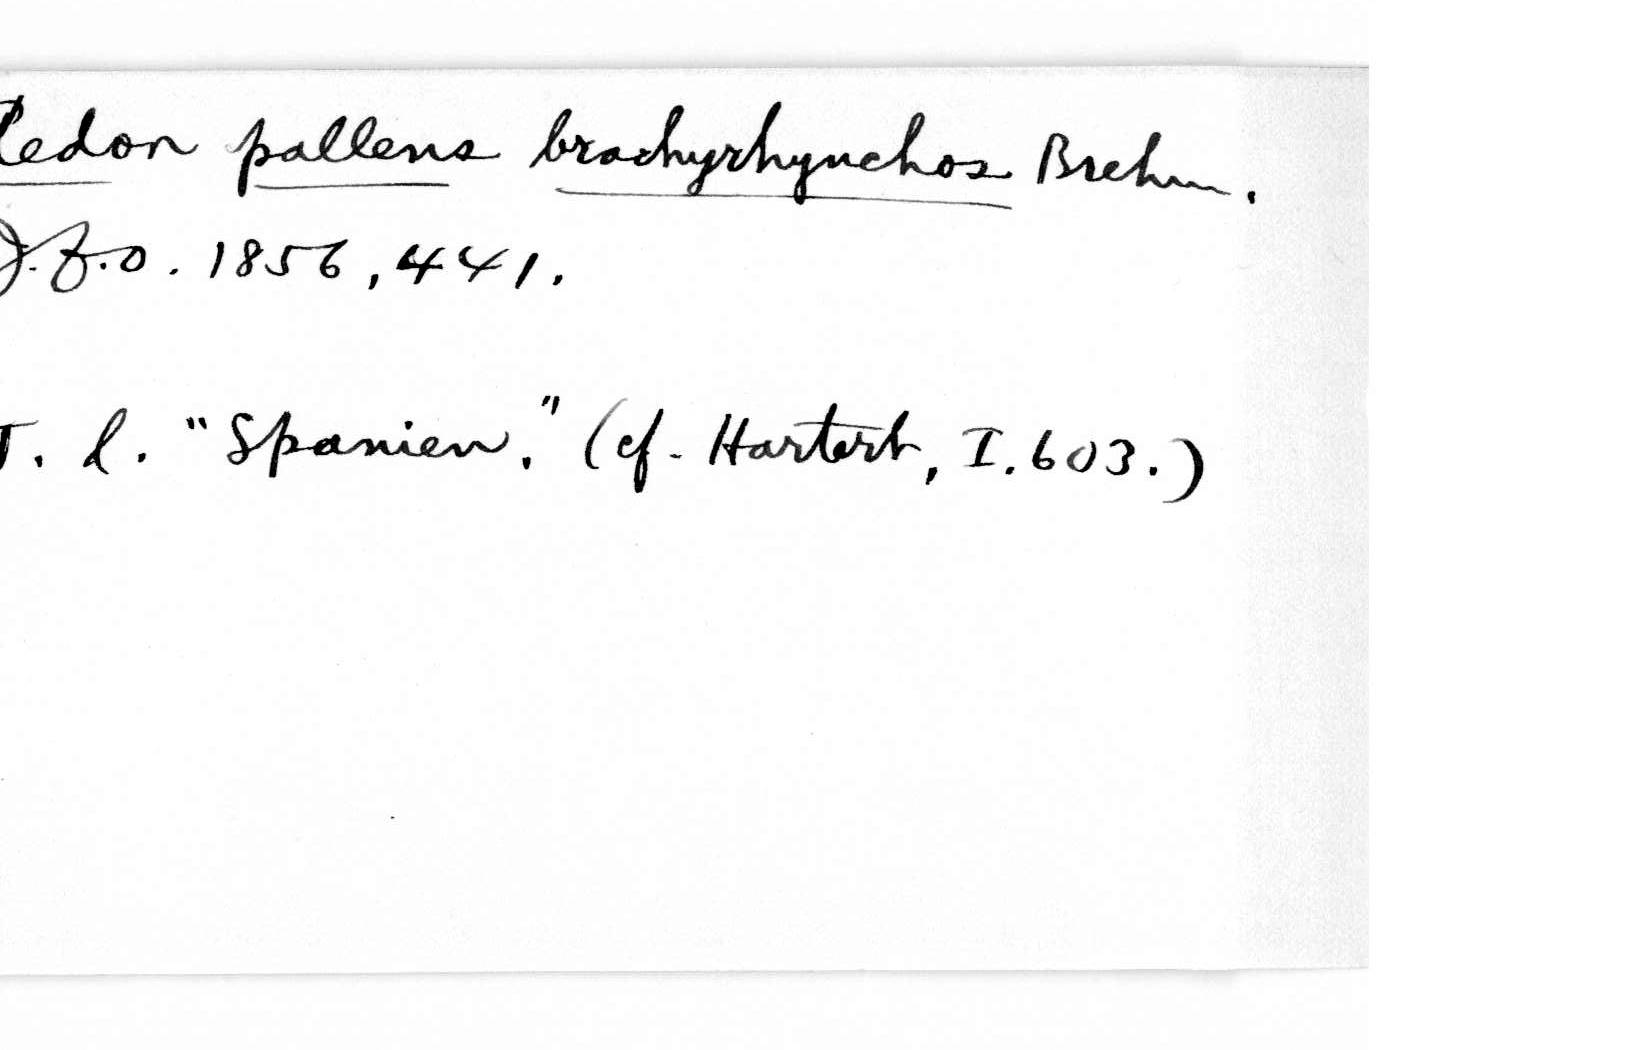 Aedon pallens brachyrhynchos Brehm.
J.f.O. 1856, 441.
T. l. "Spanien." (cf. Hartert, I. 603.)